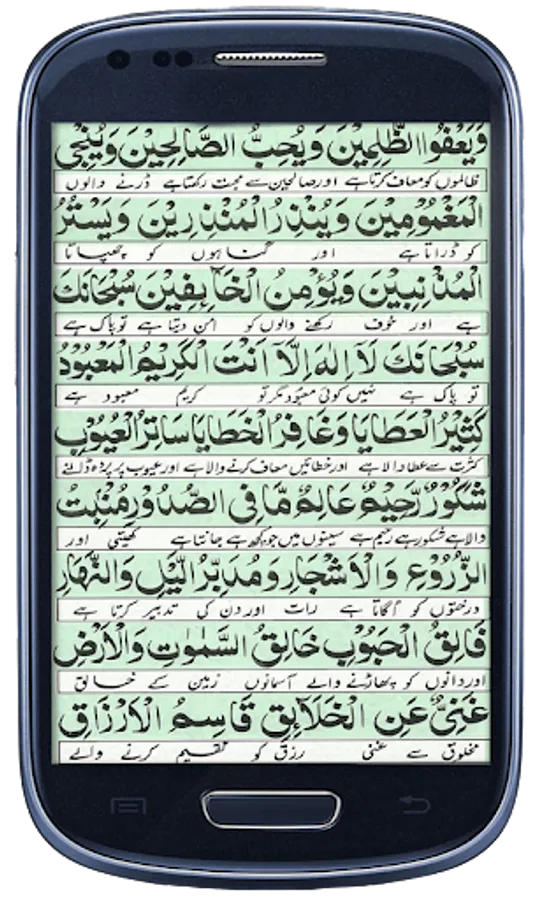 وَيَعْفُوا الظّٰلِمِيْنَ وَيُحِبُّ الصَّالِحِيْنَ وَيُنْجِى
ظالموں کو معاف کرتا ہے اور صالحین سے محبت رکھتا ہے ڈرنے والوں
الْمَغْمُوْمِيْنَ وَيُنْذِرُ الْمُنْذِرِيْنَ وَيَسْتُرُ
کو ڈراتا ہے اور گناہوں کو چھپاتا
الْمُذْنِبِيْنَ وَيُؤْمِنُ الْخَآئِفِيْنَ سُبْحَانَكَ
ہے اور خوف رکھنے والوں کو امن دیتا ہے تو پاک ہے
سُبْحَانَكَ لَآ اِلٰهَ اِلَّآ اَنْتَ الْكَرِيْمُ الْمَعْبُوْدُ
تو پاک ہے نہیں کوئی معبود مگر تو کریم معبود ہے
كَثِيْرُ الْعَطَايَا وَغَافِرُ الْخَطَايَا سَاتِرُ الْعُيُوْبِ
کثرت سے عطا والا ہے اور خطائیں معاف کرنے والا ہے اور عیوب پر پردہ ڈالنے
شَكُوْرٌ رَّحِيْمٌ عَالِمٌ مَّا فِى الصُّدُوْرِ مُنْبِتُ
والا ہے شکور ہے رحیم ہے سینوں میں جو کچھ ہے جانتا ہے کھیتی اور
الزُّرُوْعِ وَالْاَشْجَارِ وَمُدَبِّرُ اللَّيْلِ وَالنَّهَارِ
درختوں کو اگاتا ہے رات اور دن کی تدبیر کرتا ہے
فَالِقُ الْحُبُوْبِ خَالِقُ السَّمٰوٰتِ وَالْاَرْضِ
اور دانوں کو پھاڑنے والے آسمانوں زمین کے خالق
غَنِىٌّ عَنِ الْخَلَآئِقِ قَاسِمُ الْاَرْزَاقِ
مخلوق سے غنی رزق کو تقسیم کرنے والے